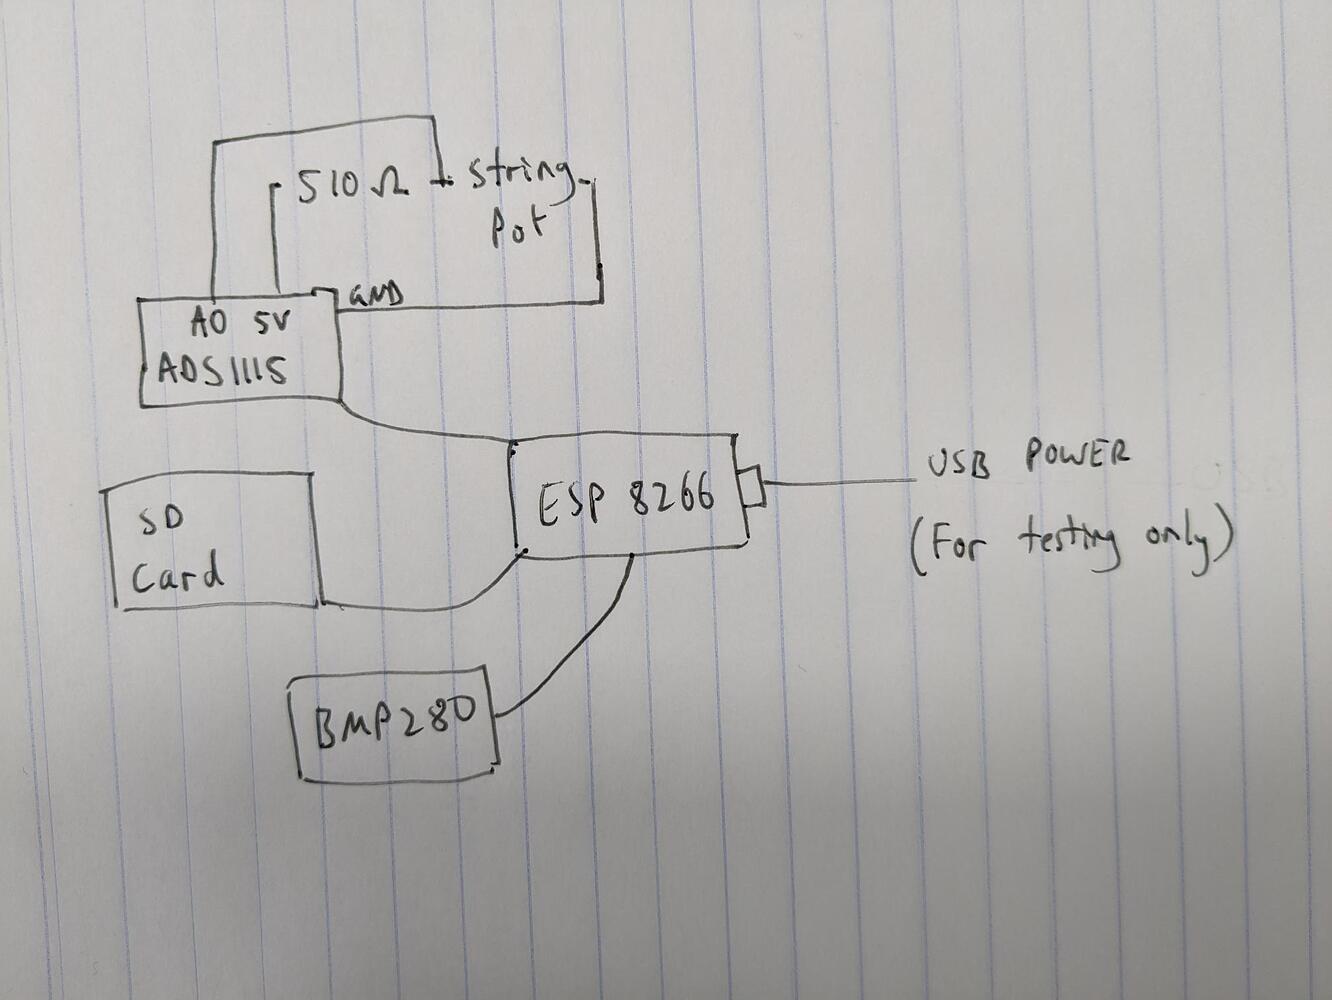 510 Ω
string
Pot
GND
A0 5V
ADS1115
SD
Card
ESP 8266
USB POWER
(For testing only)
BMP280